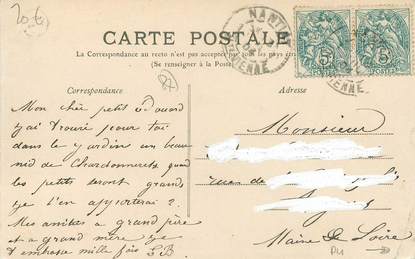 20 €
CARTE POSTALE
La Correspondance au recto n'est pas acceptée par tous les pays étrangers
(Se renseigner à la Poste)
Correspondance
Adresse
NANT
VIENNE
5
5
VIENNE
Mon cher petit Edouard
j'ai trouvé pour toi
dans le jardin un beau
nid de Chardonnerets quand
les petits seront grands
je t'en apporterai ?
Mes amitiés a grand père
et a grand mère je
t'embrasse mille fois
Monsieur
rue de
Maine & Loire